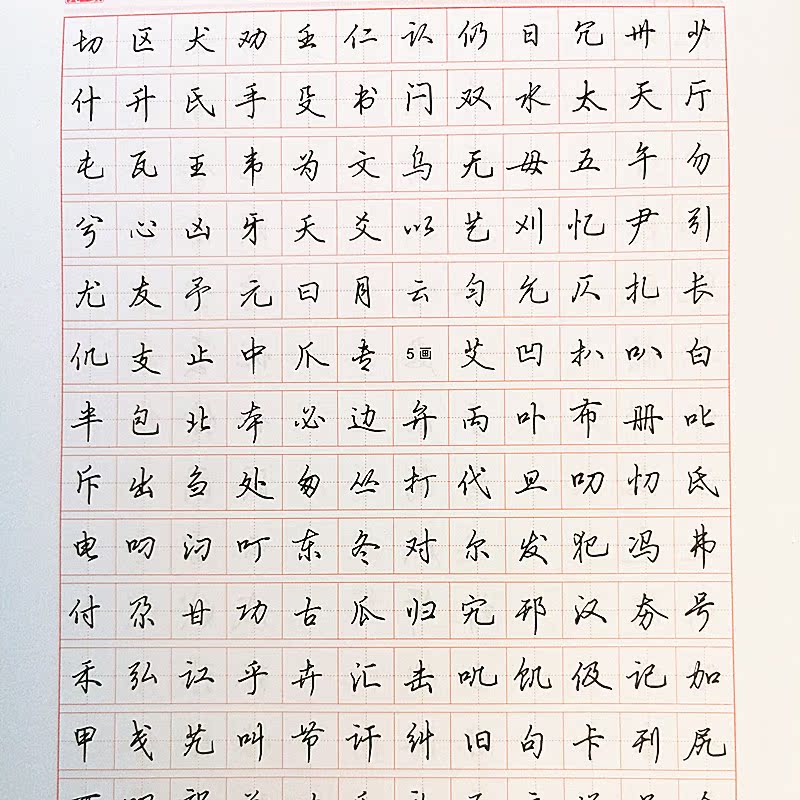 切 区 犬 劝 壬 仁 认 仍 日 冗 卅 少
什 升 氏 手 殳 书 闩 双 水 太 天 厅
屯 瓦 王 韦 为 文 乌 无 毋 五 午 勿
兮 心 凶 牙 夭 爻 以 艺 刈 忆 尹 引
尤 友 予 元 曰 月 云 匀 允 仄 扎 长
仉 支 止 中 爪 专 5画 艾 凹 扒 叭 白
半 包 北 本 必 边 弁 丙 卟 布 册 叱
斥 出 刍 处 匆 丛 打 代 旦 叨 忉 氐
电 叼 汈 叮 东 冬 对 尔 发 犯 冯 弗
付 尕 甘 功 古 瓜 归 宄 邗 汉 夯 号
禾 弘 讧 乎 卉 汇 击 叽 饥 伋 记 加
甲 戋 艽 叫 节 讦 纠 旧 句 卡 刊 尻